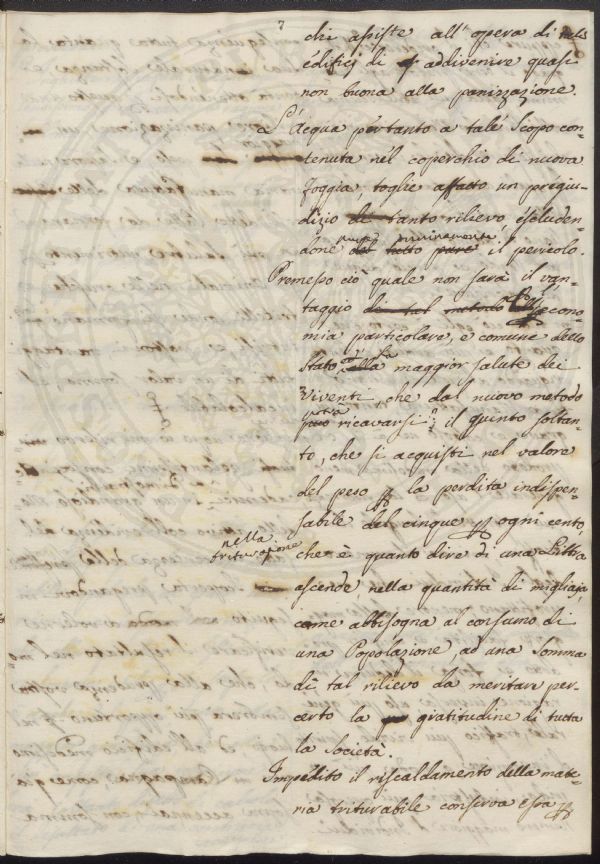 7
chi assiste all' opera di tali
edificj di addivenire quasi
non buona alla panizzazione.
L'acqua pertanto a tale scopo con=
tenuta nel coperchio di nuova
foggia, toglie affatto un pregiu=
dizio di tanto rilievo, escluden=
done pienamente il pericolo.
Premesso ciò quale non sarà il van=
taggio di tal metodo econo=
mia particolare, e comune dello
Stato alla maggior salute dei
Viventi, che dal nuovo metodo
potrà
può ricavarsi? il quinto soltan=
to, che si acquisti nel valore
del peso la perdita indispen=
sabile del cinque ogni cento,
nella
triturazione
che è quanto dire di una Libbra
ascende, nella quantità di migliaja,
come abbisogna al consumo di
una Popolazione, ad una somma
di tal rilievo da meritare per=
certo la gratitudine di tutta
la Società.
Impedito il riscaldamento della mate=
ria triturabile conserva essa